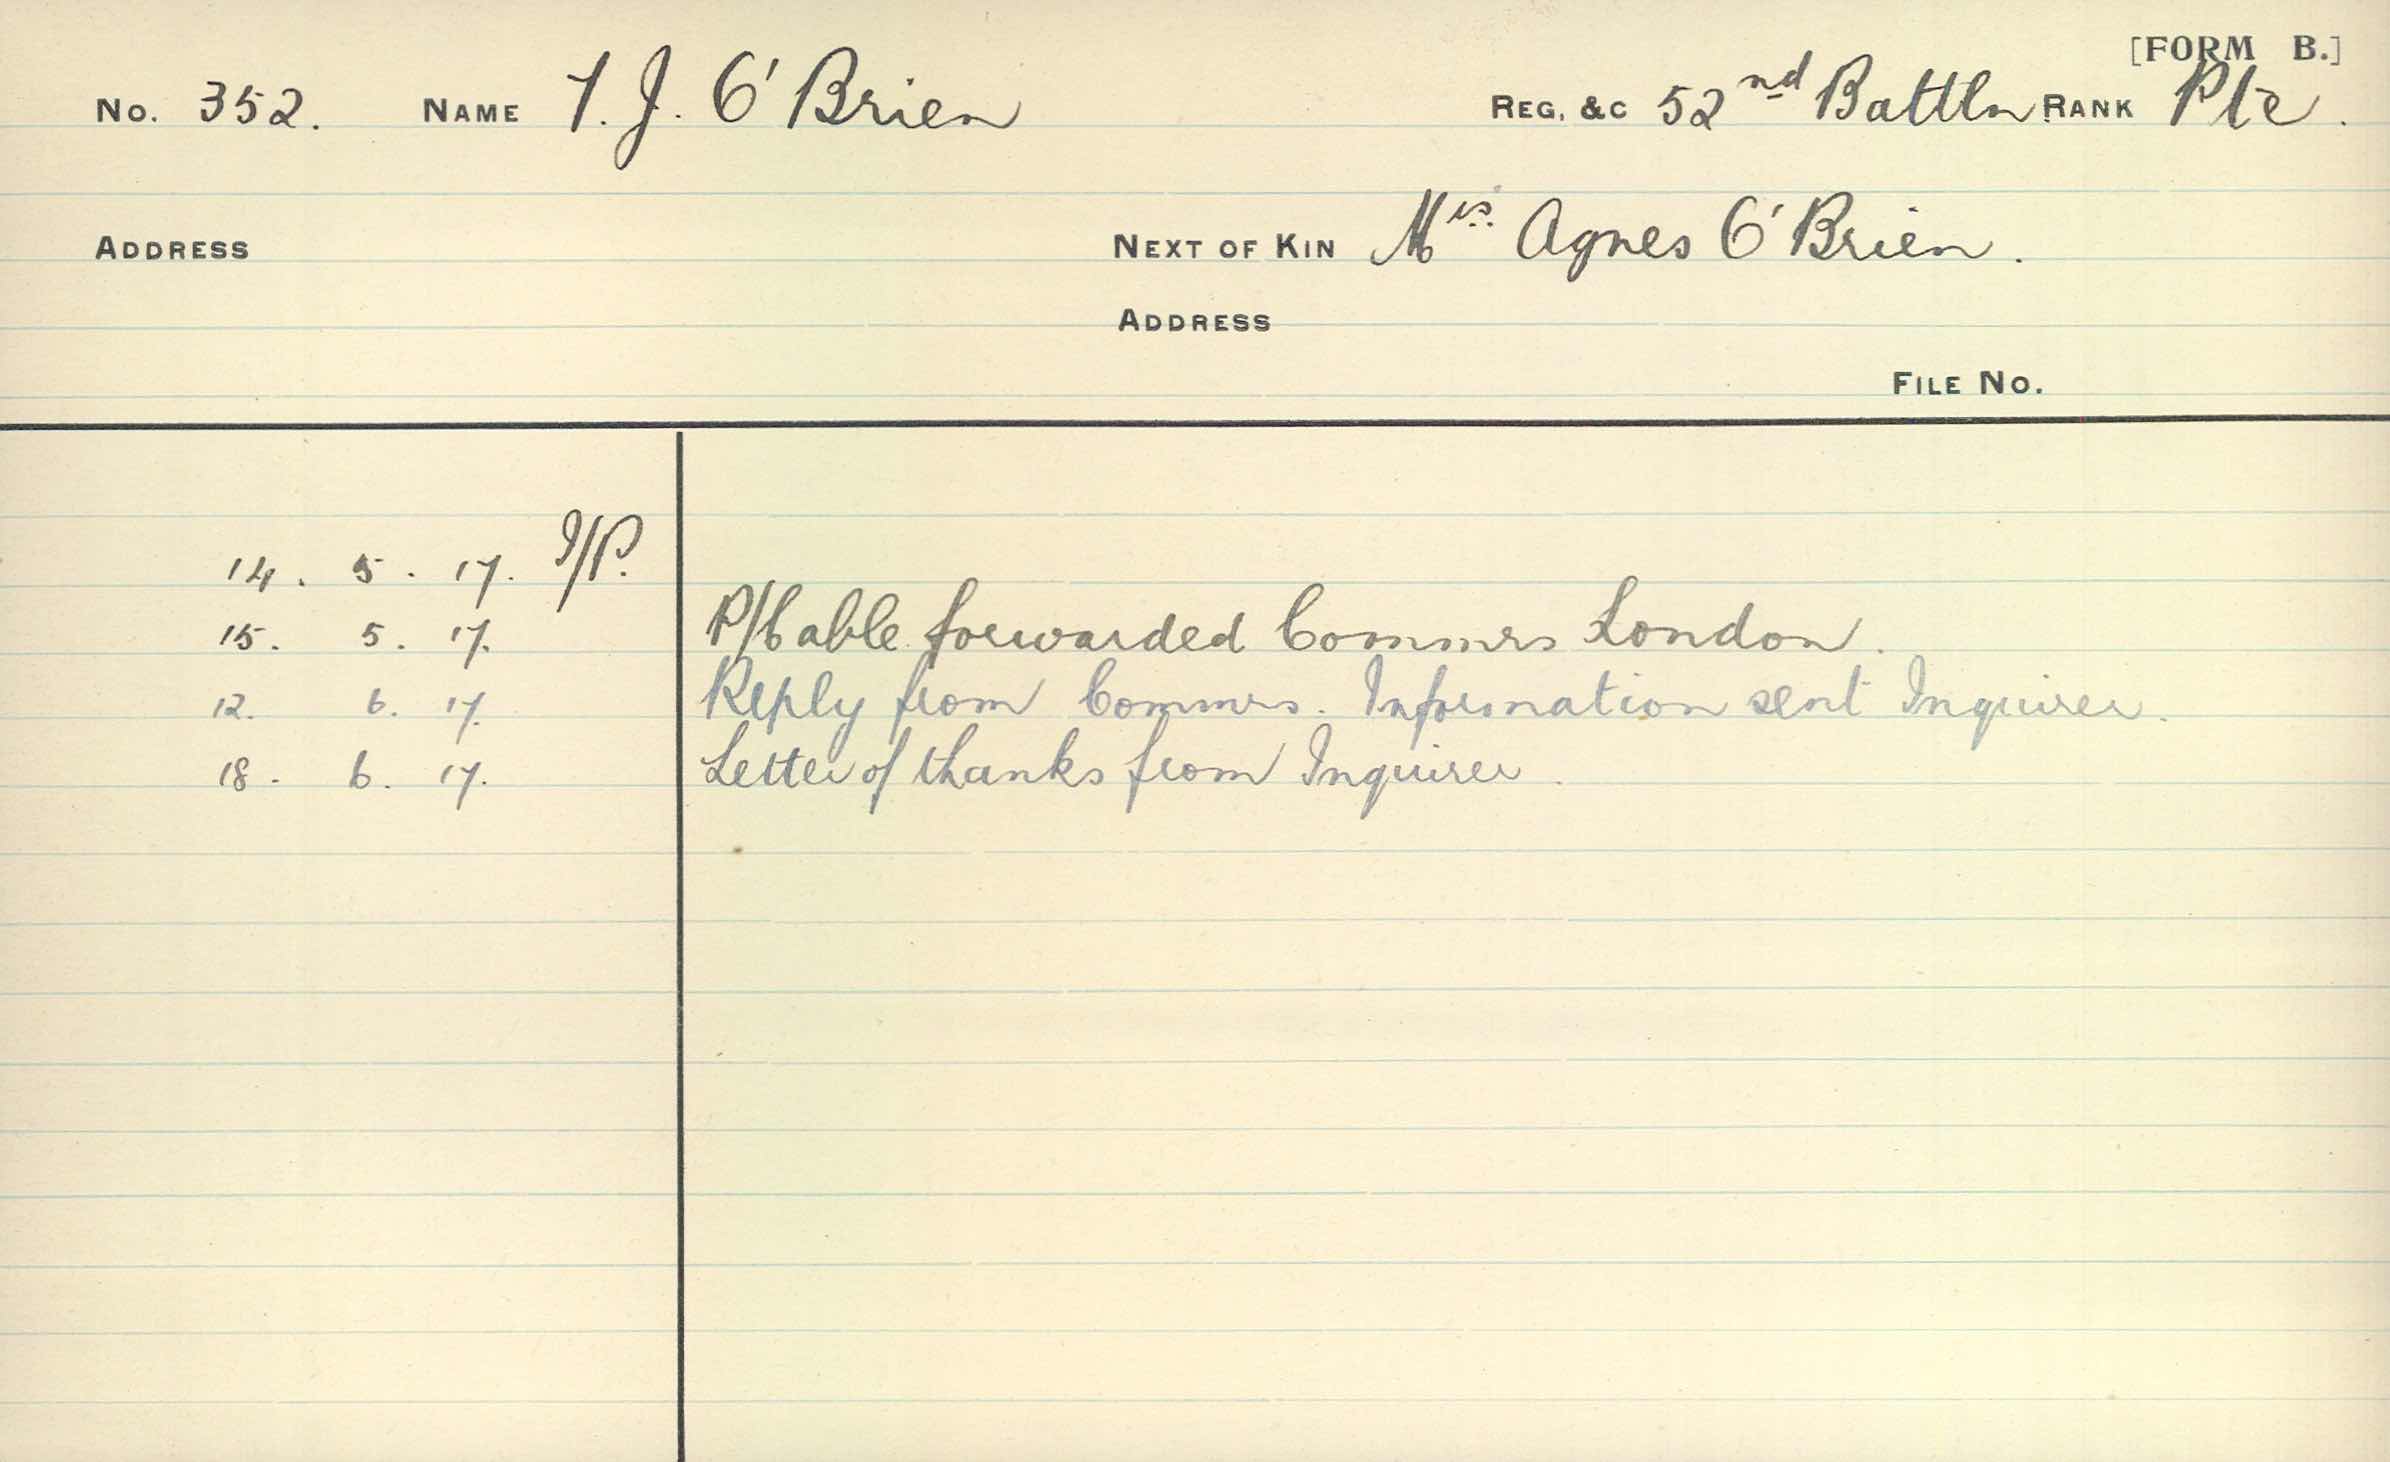 [FORM B.]
No. 352. NAME T. J. O'Brien REG. &C 52nd Battln RANK Pte.
ADDRESS NEXT OF KIN Mrs. Agnes O'Brien.
ADDRESS
FILE No.
14. 5. 17. I/P.
15. 5. 17. P/Cable forwarded Commrs London.
12. 6. 17. Reply from Commrs. Information sent Inquirer.
18. 6. 17. Letter of thanks from Inquirer.